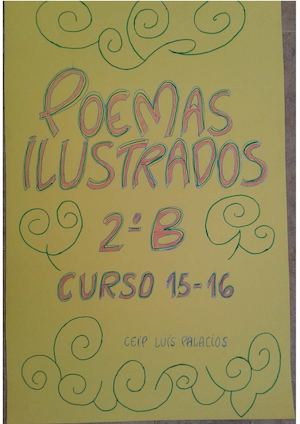 POEMAS
ILUSTRADOS
2º B
CURSO 15-16
CEIP LUÍS PALACIOS